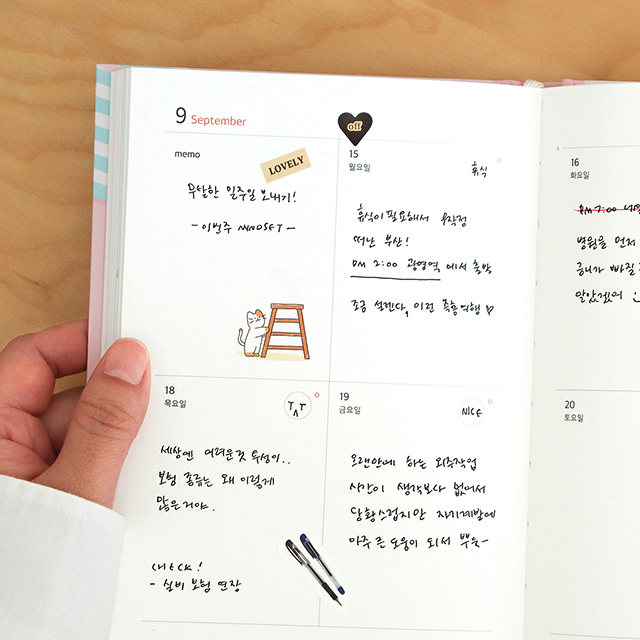 9 September
off
memo
LOVELY
무탈한 일주일 보내기!
- 이번주 MINDSET -
15
월요일
휴식
휴식이 필요해서 무작정
떠난 부산!
PM 2:00 광명역 에서 출발
조금 설렌다, 이런 즉흥여행
16
화요일
PM 7:00
병원을 먼저
금니가 빠질
알았겠어
18
목요일
TㅅT
세상엔 어려운것 투성이..
보험 종류는 왜 이렇게
많은거야.
CHECK!
- 실비 보험 연장
19
금요일
NICE
오랜만에 하는 외주작업
시간이 생각보다 없어서
당황스럽지만 자기계발에
아주 큰 도움이 되서 뿌듯~
20
토요일